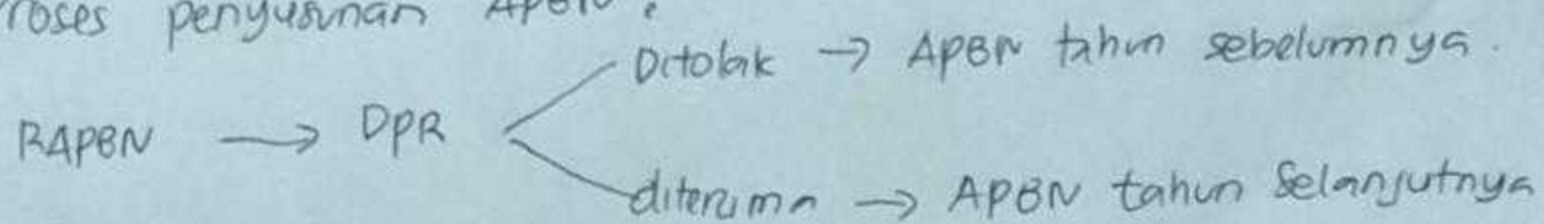 roses penyusunan APBN :
Ditolak → APBN tahun sebelumnya.
RAPBN → DPR
diterima → APBN tahun Selanjutnya